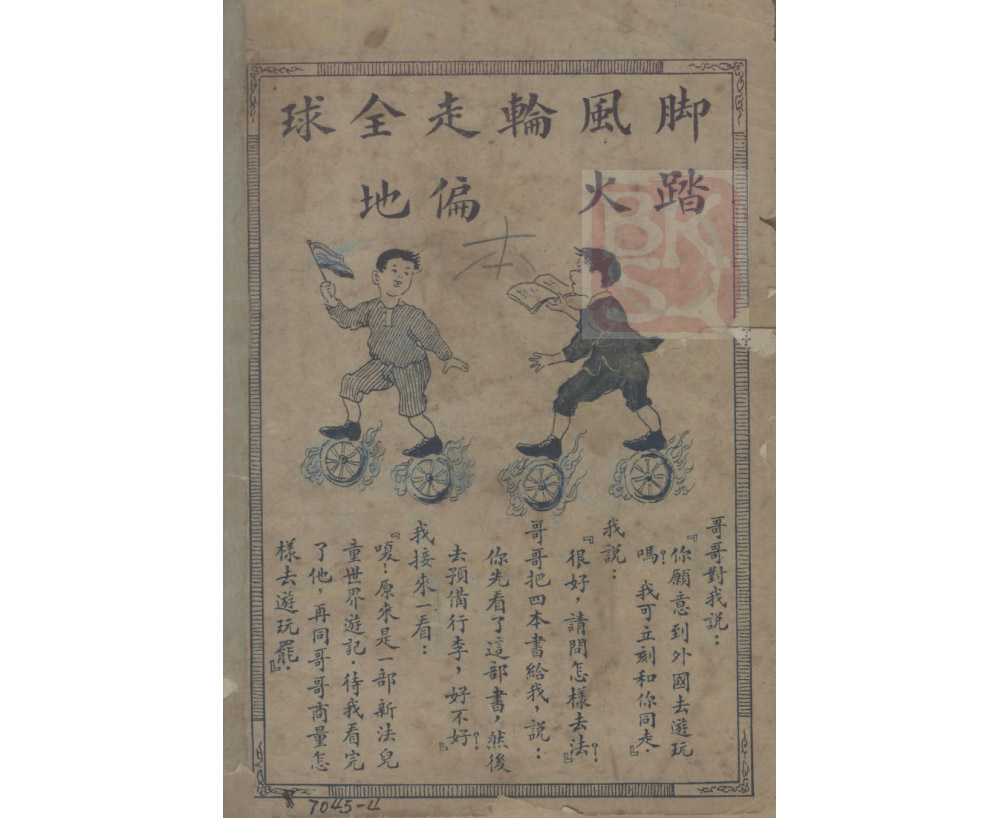 脚風輪走全球
踏火偏地
哥哥對我說：
『你願意到外國去遊玩
嗎？我可立刻和你同走。』
我說：
『很好，請問怎樣去法？』
哥哥把四本書給我，說：
你先看了這部書，然後
去預備行李，好不好？』
我接來一看：
『嗄！原來是一部新法兒
童世界遊記．待我看完
了他，再同哥哥商量怎
樣去遊玩罷．』
7045-4
BKSJ